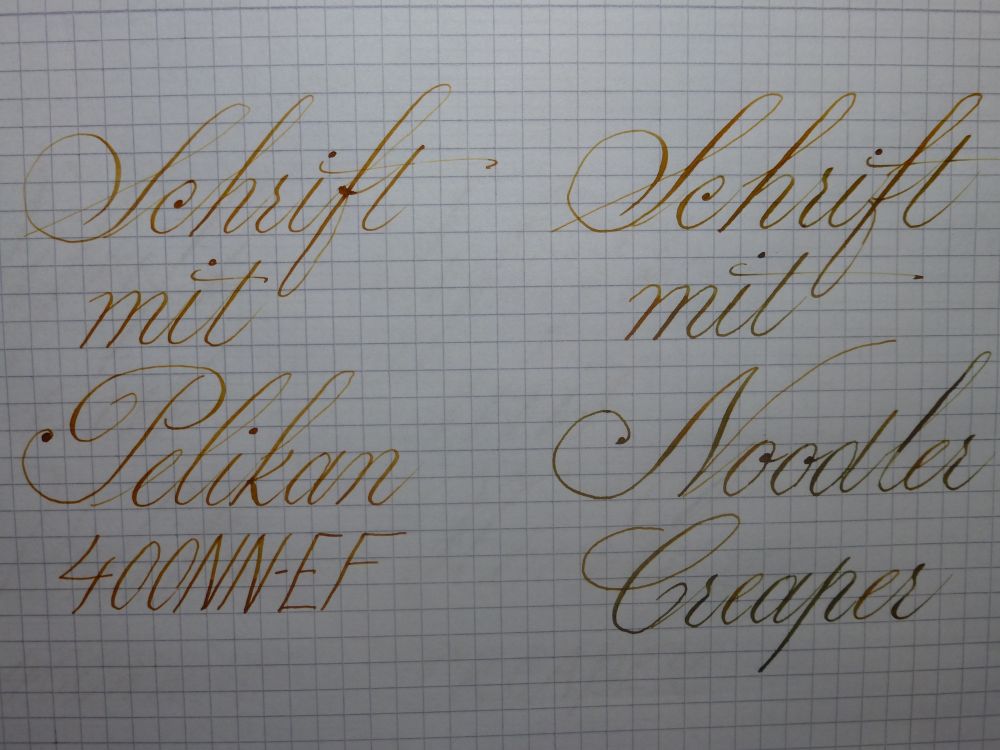 Schrift
mit
Pelikan
400NN-EF
Schrift
mit
Noodler
Creaper